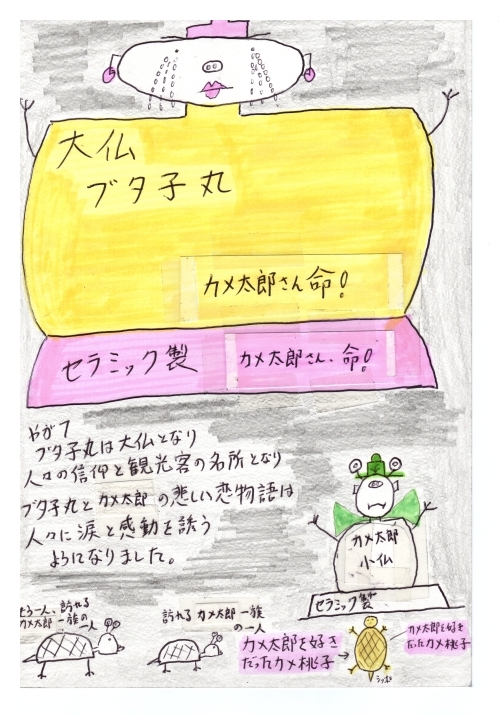 大仏
ブタ子丸
カメ太郎さん命!
セラミック製
カメ太郎さん、命!
やがて
ブタ子丸は大仏となり
人々の信仰と観光客の名所となり
ブタ子丸とカメ太郎の悲しい恋物語は
人々に涙と感動を誘う
ようになりました。
カメ太郎
小仏
セラミック製
もう一人、訪れる
カメ太郎一族の
一人
訪れるカメ太郎一族
の一人
カメ太郎を好き
だったカメ桃子
カメ太郎を好き
だったカメ桃子